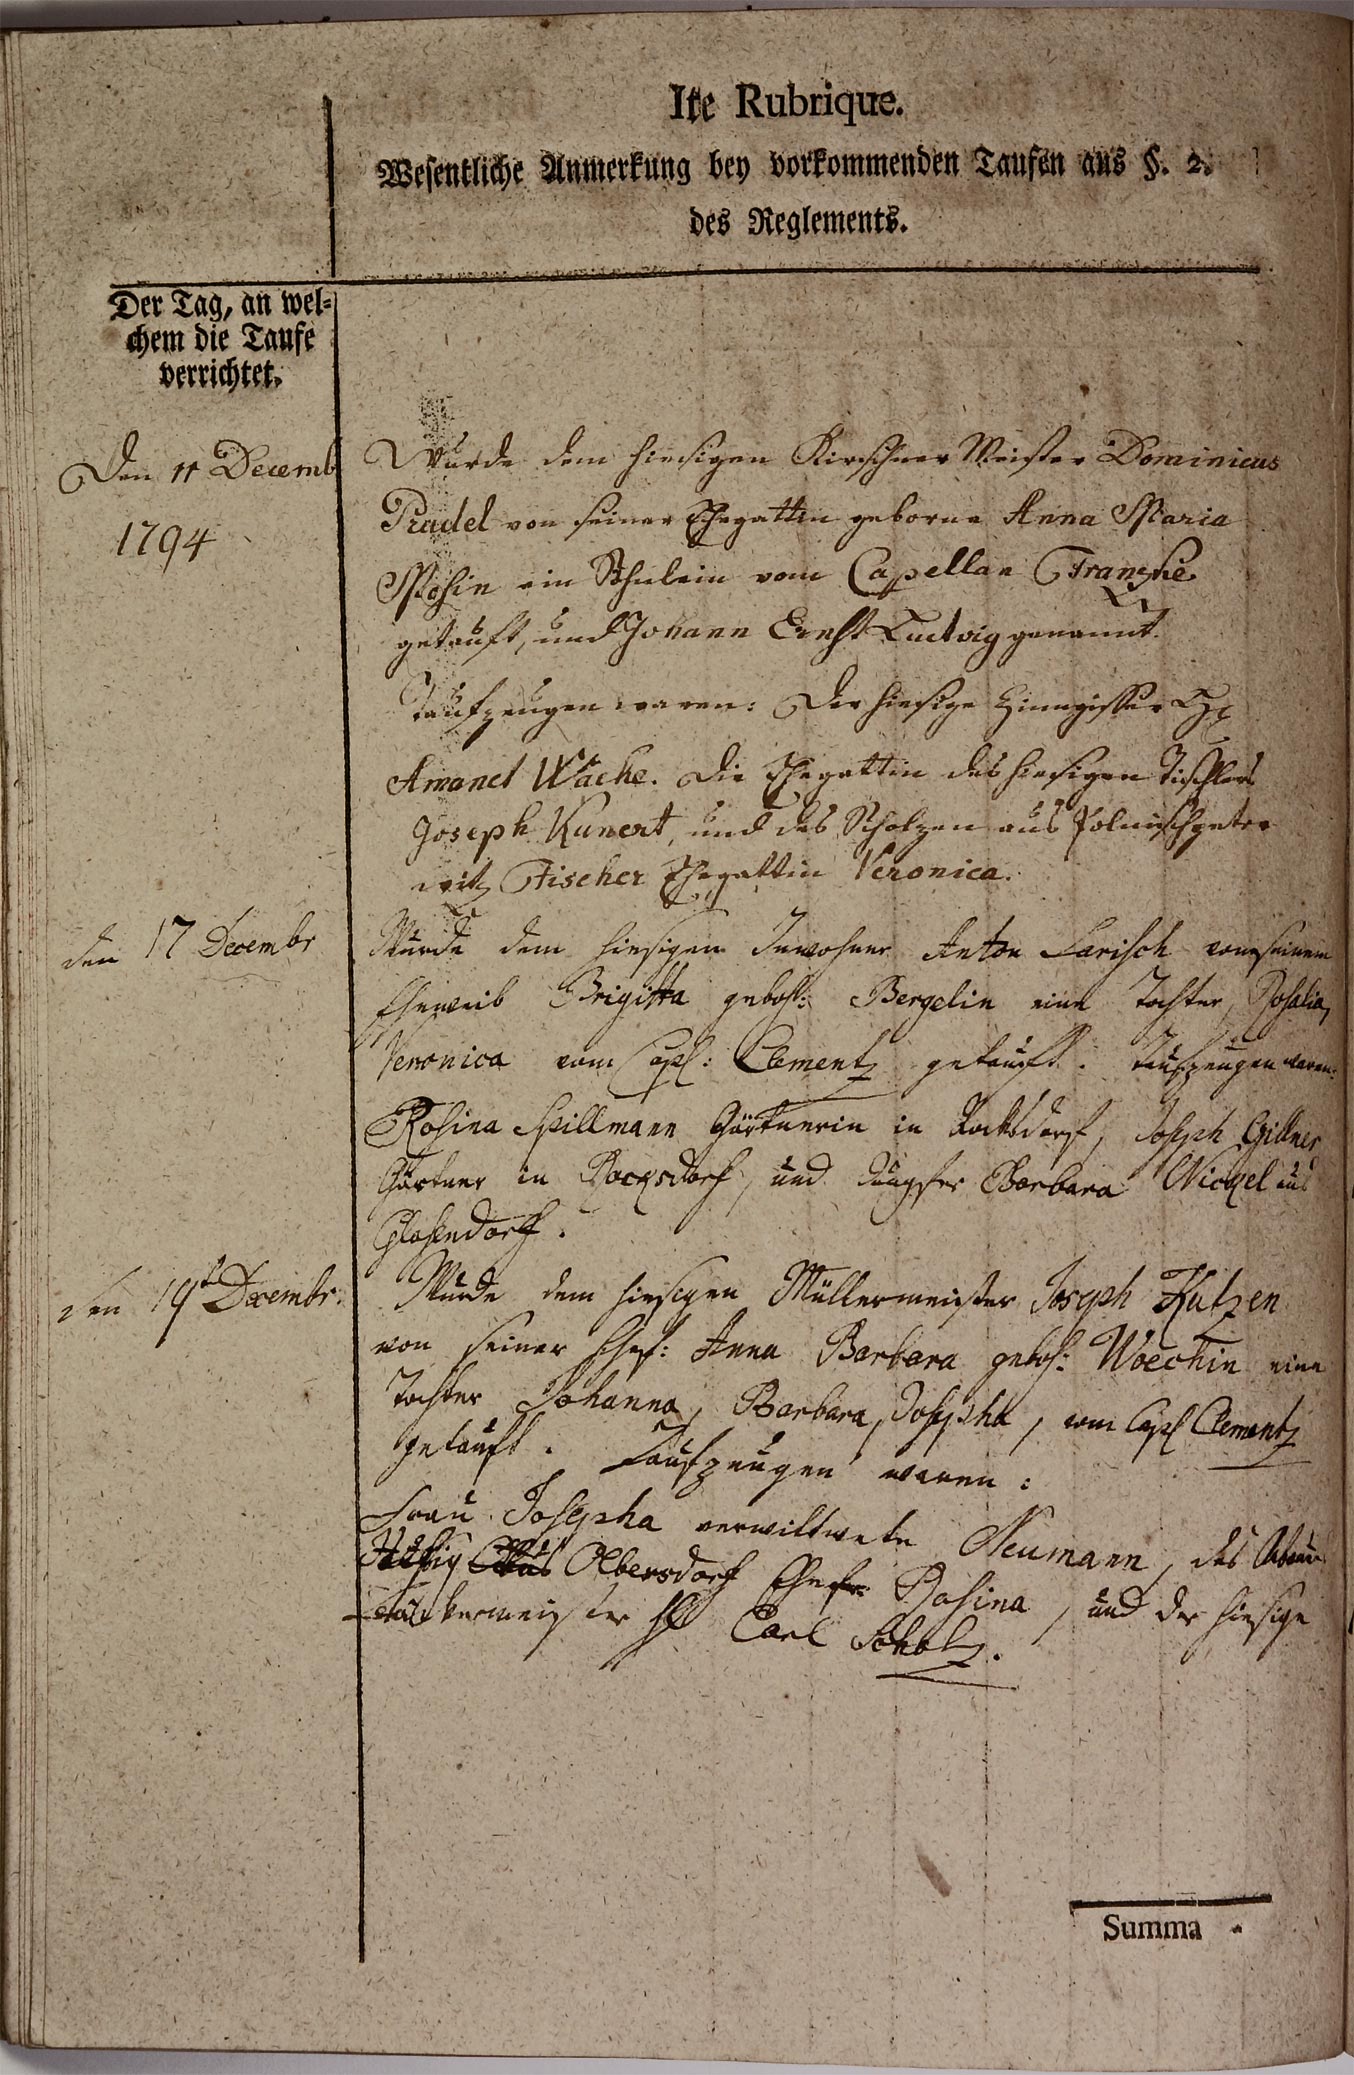 Ite Rubrique.
Wesentliche Anmerkung bey vorkommenden Taufen aus §. 2.
des Reglements.
Der Tag, an wel-
chem die Taufe
verrichtet.
Den 11 Decemb
1794
Wurde dem hiesigen Kirschner Meister Dominicus
Pradel von seiner Ehegattin geborne Anna Maria
ein Söhnlein vom Capellan
getauft, und Johann Ernst Ludwig genannt.
Taufzeugen waren: Der hiesige
Amand Wache. Die Ehegattin des hiesigen Tischlers
Joseph Kunert, und des Scholzen aus Polnischpeter
witz Fischer Ehegattin Veronica.
den 17 Decembr
Wurde dem hiesigen Inwohner Anton Larisch von seinem
Eheweib Brigitta geboh: Bergelin eine Tochter, Rosalia,
Veronica vom Capl: Clementz getauft. Taufzeugen waren:
Rosina Spillmann Gärtnerin in Rocksdorf, Joseph Gillner
Gärtner in Rocksdorf, und Jungfer Barbara Nickel aus
Glasendorf.
den 19t Decembr.
Wurde dem hiesigen Müllermeister Joseph Kutzen
von seiner Ehef: Anna Barbara geboh: Woeckin eine
Tochter Johanna, Barbara, Josepha, vom Capl Clementz
getauft. Taufzeugen waren:
Frau Josepha verwittwete Neumann, des
aus Olbersdorf Ehefr Rosina, und der hiesige
H Carl Scholz.
Summa